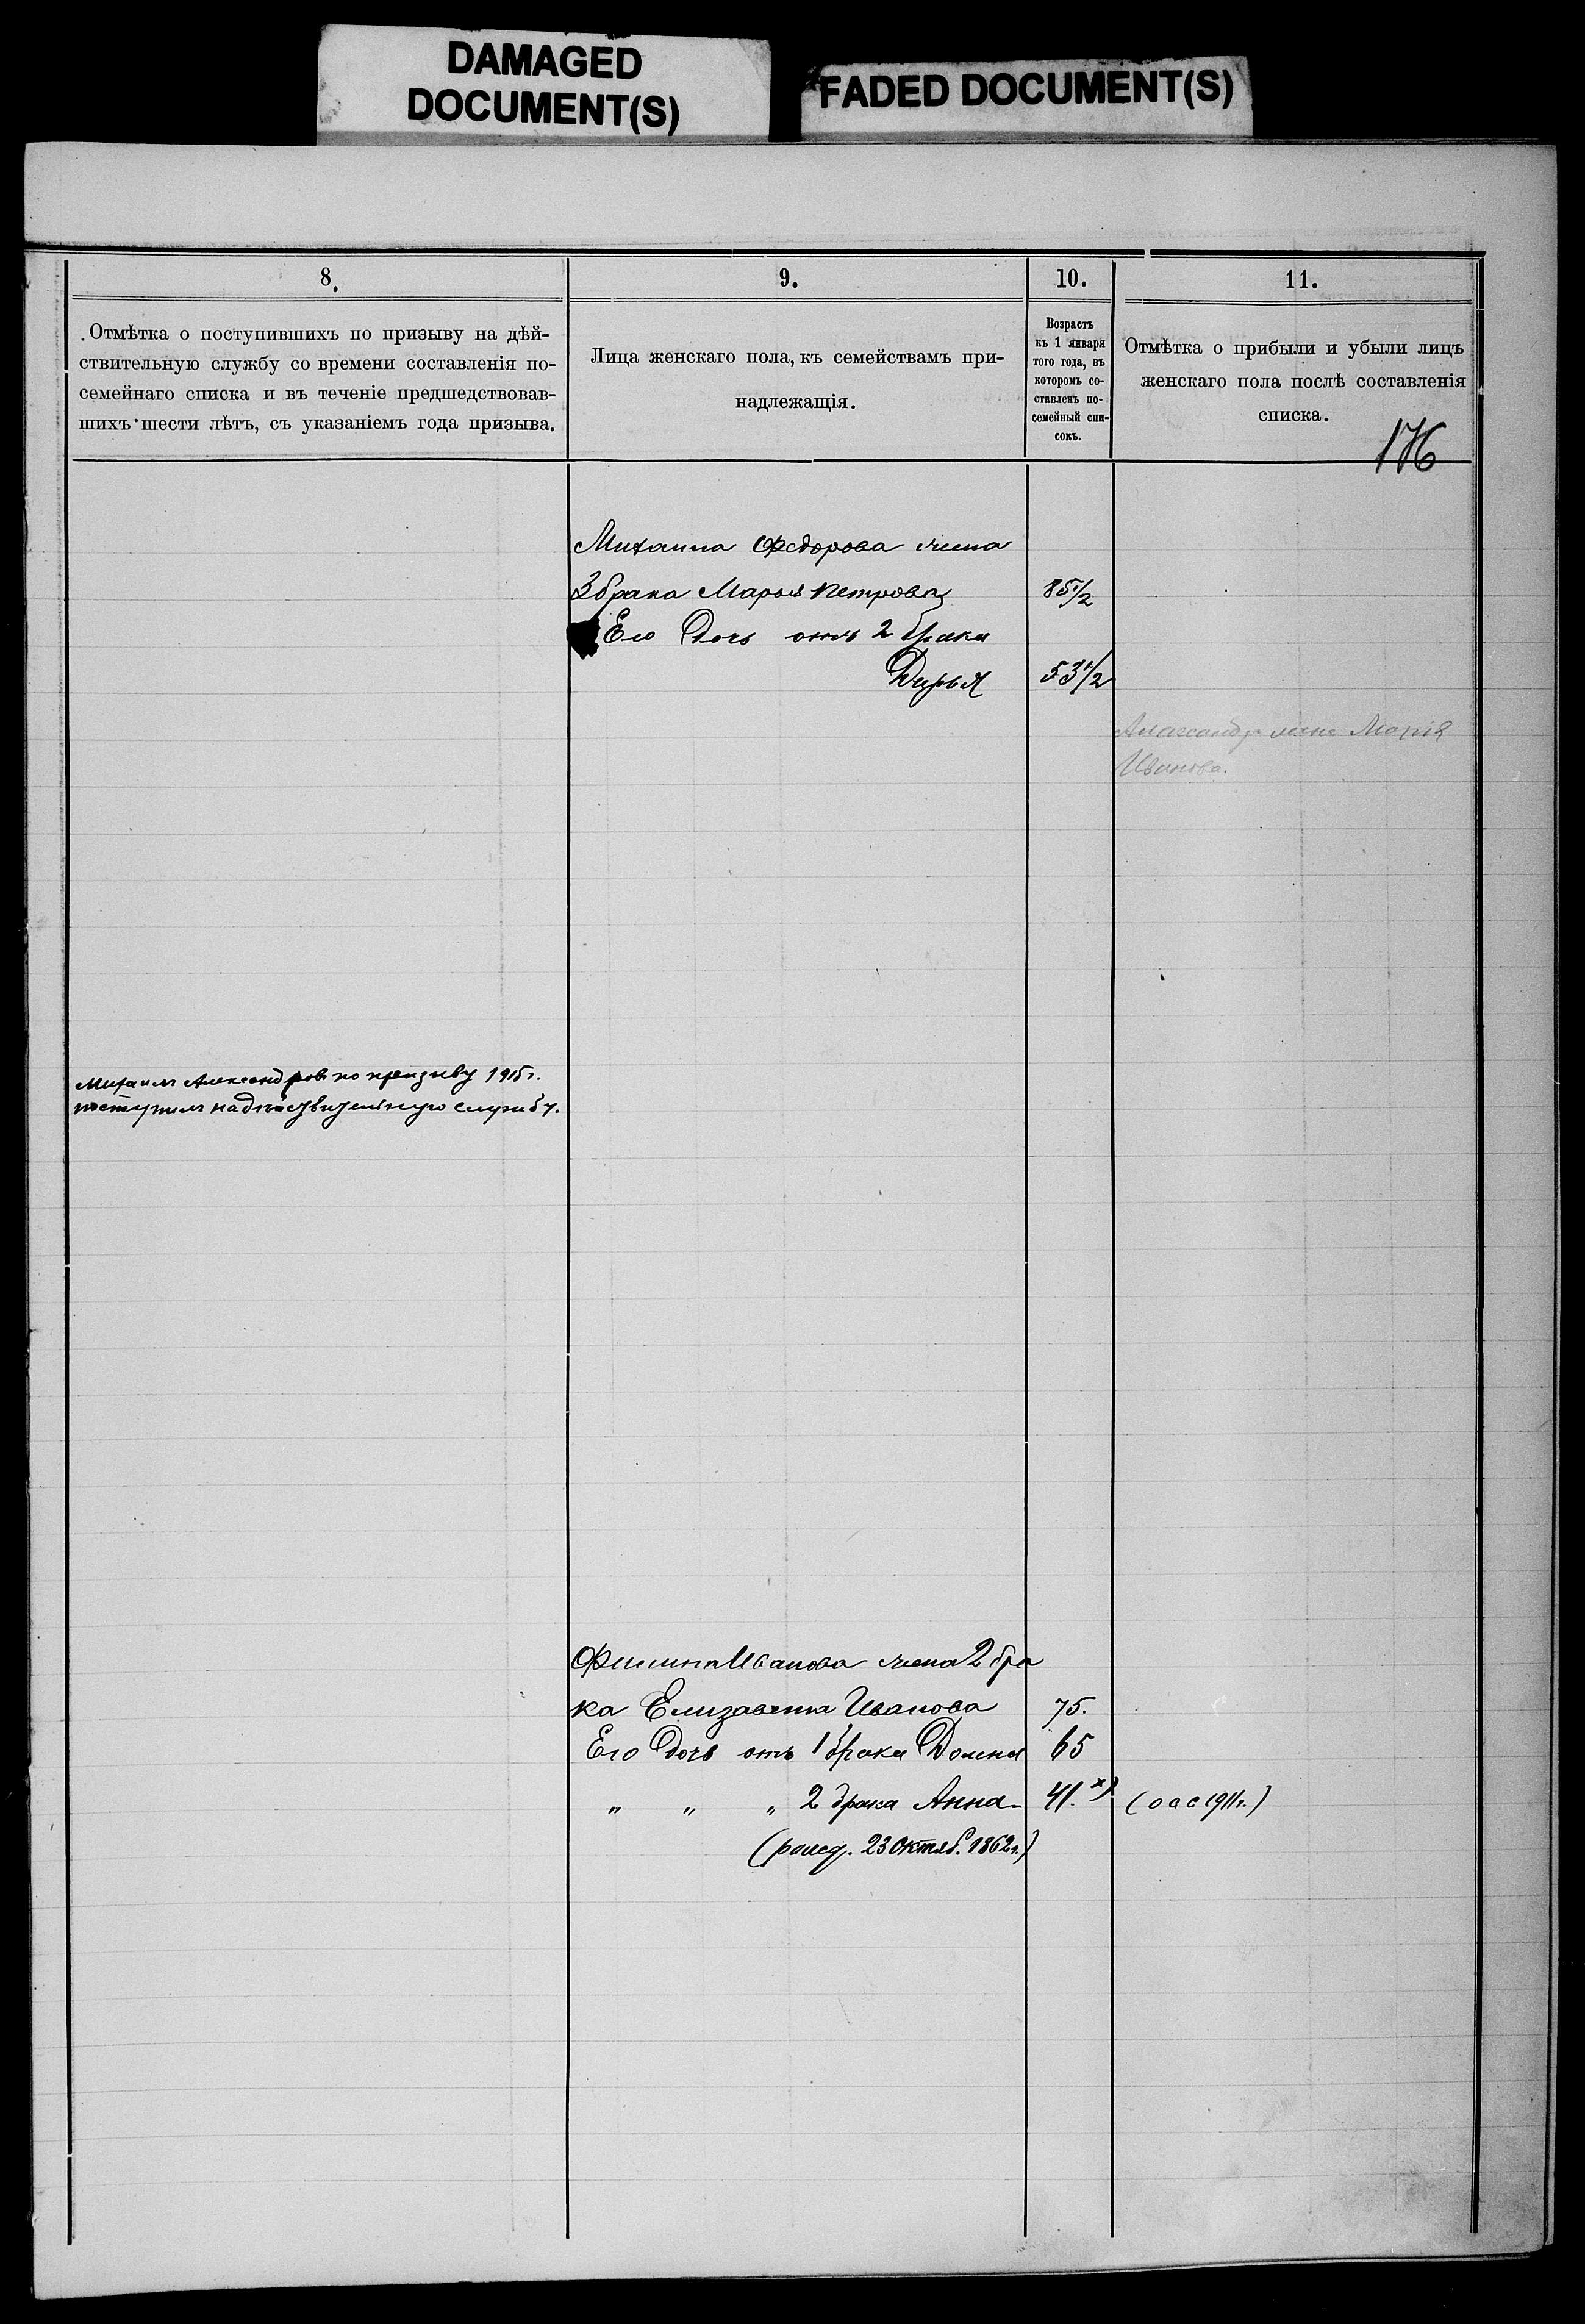 DAMAGED
DOCUMENT(S)
FADED DOCUMENT(S)
8.
Отмѣтка о поступившихъ по призыву на дѣй-
ствительную службу со времени составленія по-
семейнаго списка и въ теченіе предшедствовав-
шихъ шести лѣтъ, съ указаніемъ года призыва.
9.
Лица женскаго пола, къ семействамъ при-
надлежащія.
10.
Возрастъ
къ 1 января
того года, въ
которомъ со-
ставленъ по-
семейный спи-
сокъ.
11.
Отмѣтка о прибыли и убыли лицъ
женскаго пола послѣ составленія
списка.
176
Михаила Федорова жена
3 брака Марья Петрова 85 1/2
Его Дочь отъ 2 брака
Дарья 53 1/2
Александра жена Марія
Иванова.
Михаилъ Александровъ по призыву 1915 г.
поступилъ на дѣйствительную службу.
Филипа Иванова жена 2 бра
ка Елизавета Иванова 75.
Его дочь отъ 1 брака Домна 65
" " " 2 брака Анна 41. х) (о а с 1911 г.)
(рожд. 23 Октяб. 1862 г.)